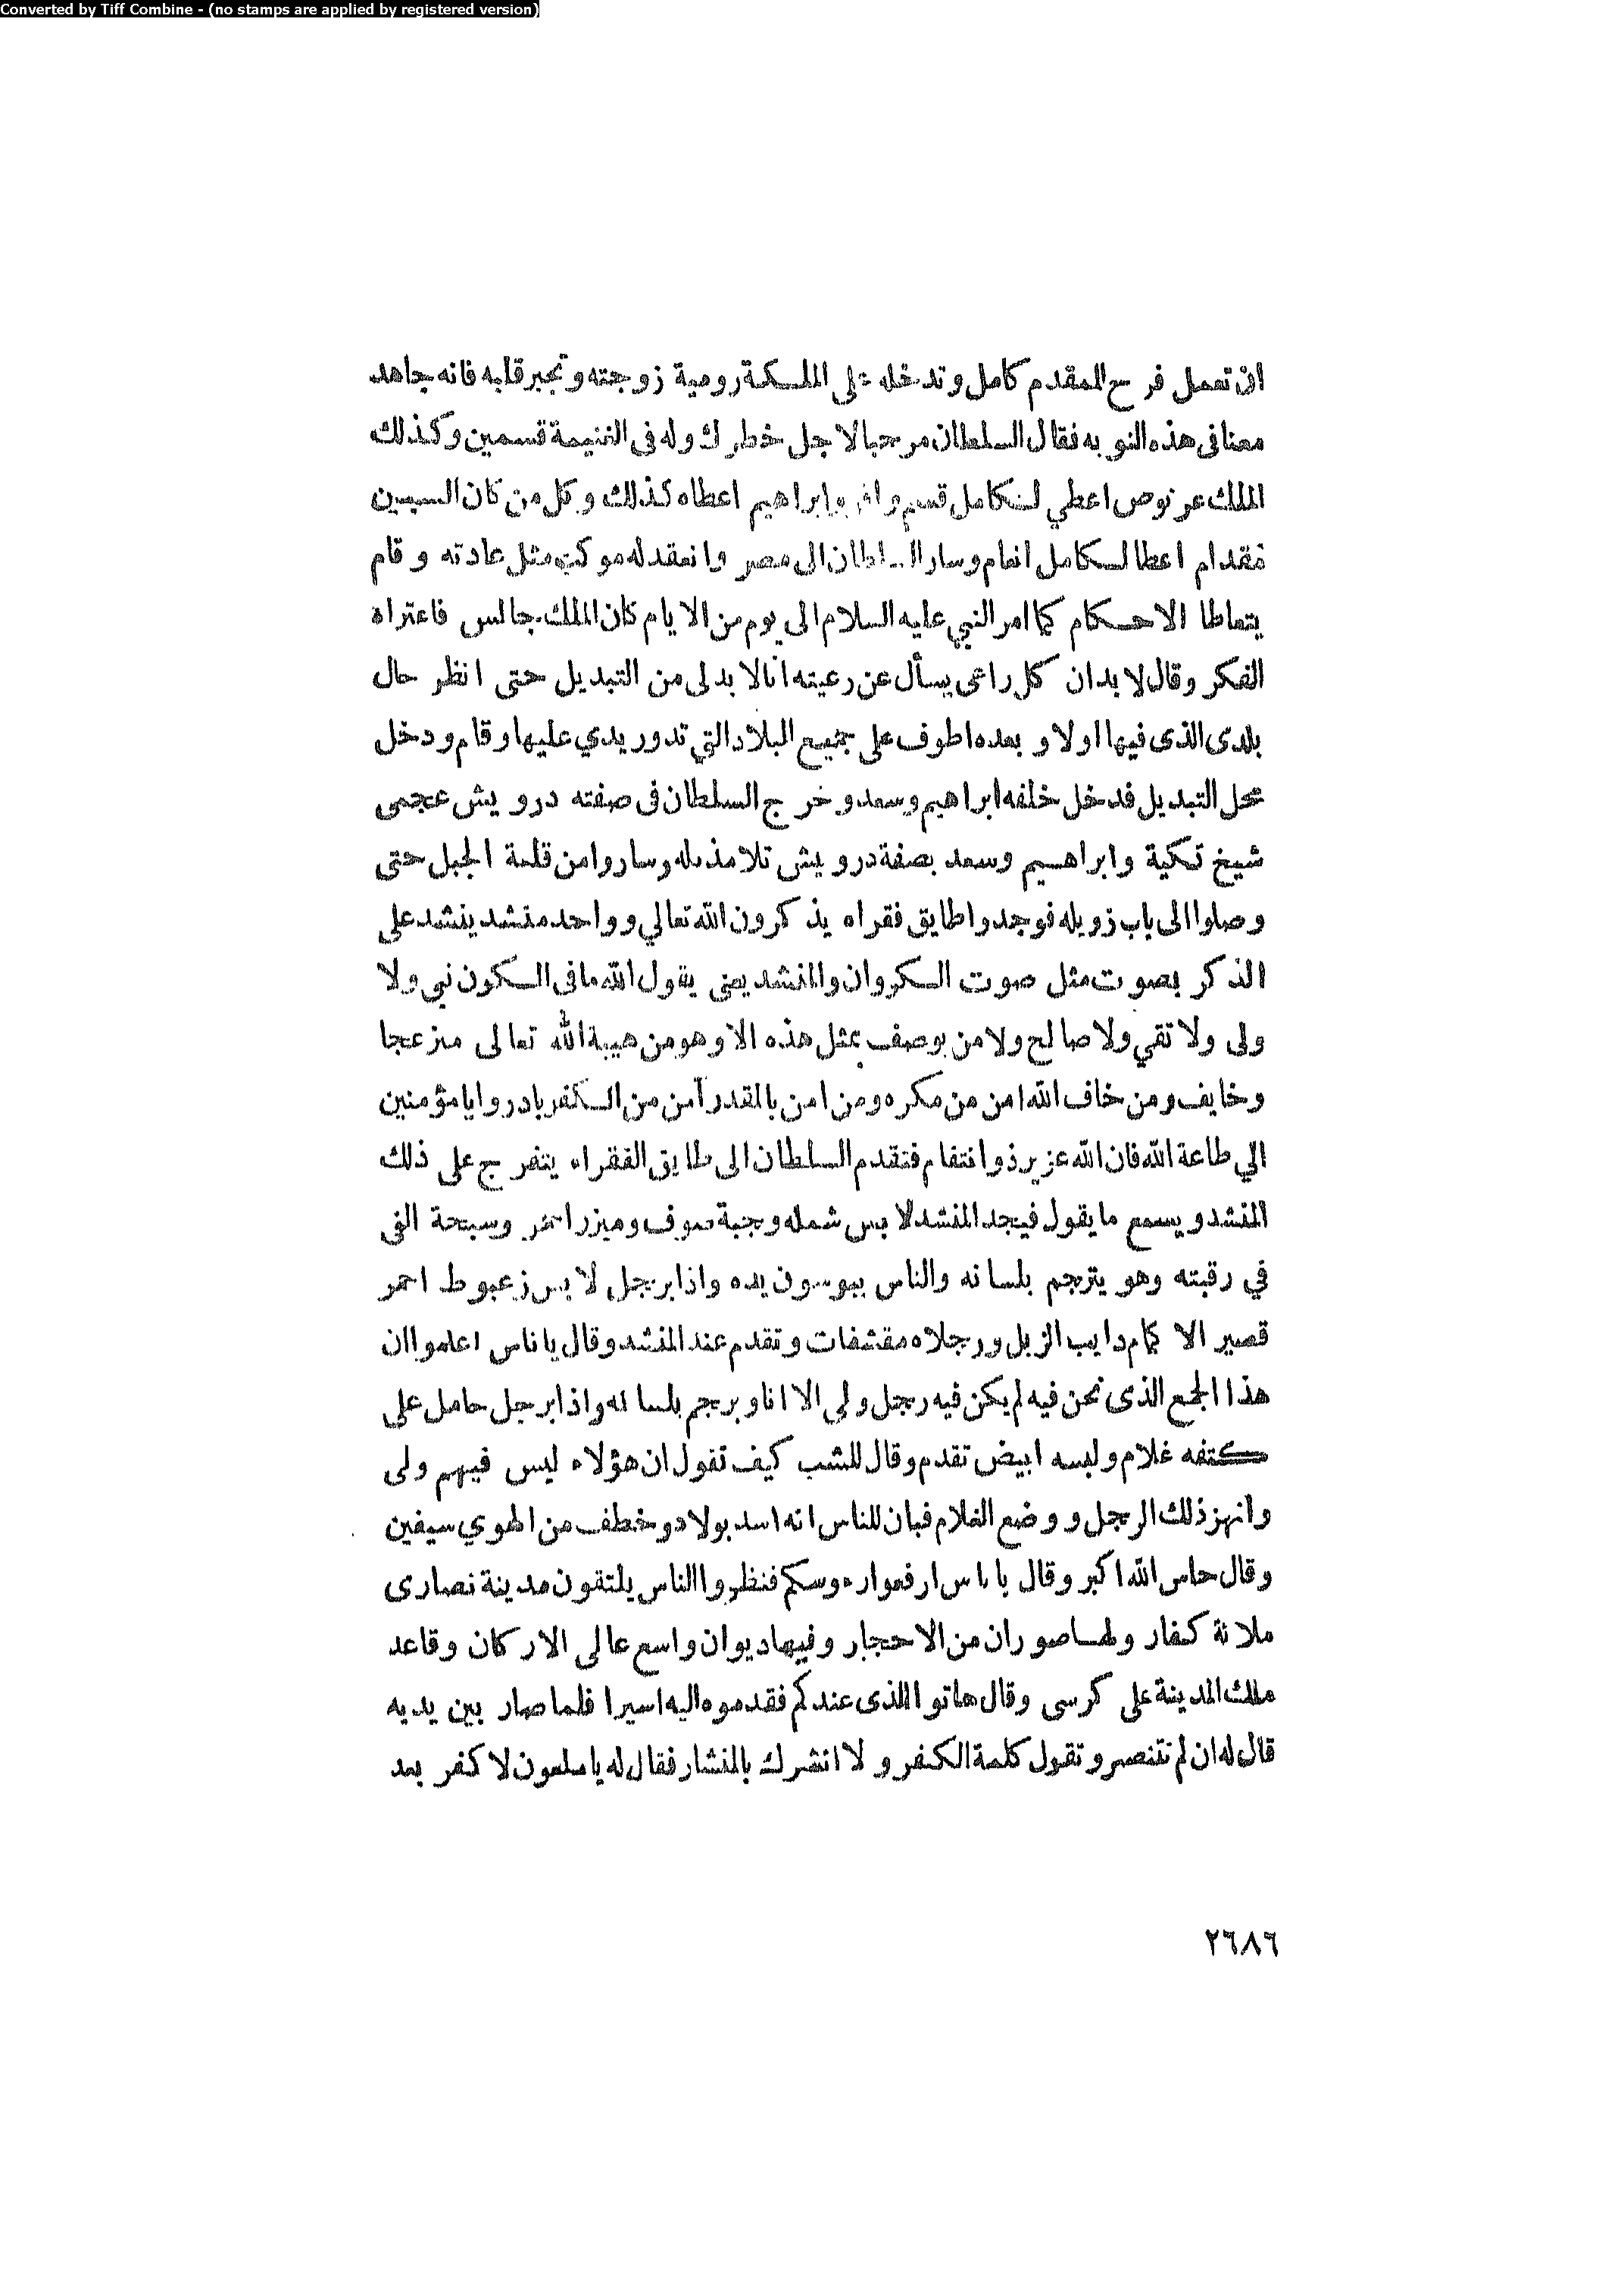 Converted by Tiff Combine - (no stamps are applied by registered version)
ان تعمل فرح للمقدم كامل وتدخله على الملكة رومية زوجته وتجبر قلبه فانه جاهد
معنا فى هذه النوبه فقال السلطان مرحبا لاجل خطرك وله فى الغنيمة قسمين وكذلك
الملك عرنوص اعطي لكامل قسم وافر وابراهيم اعطاه كذلك وكل من كان السبعين
مقدام اعطا لكامل انعام وسار السلطان الى مصر وانعقد له موكب مثل عادته وقام
يتعاطا الاحكام كما امر النبي عليه السلام الى يوم من الايام كان الملك جالس فاعتراه
الفكر وقال لا بد ان كل راعى يسأل عن رعيته انا لا بد لى من التبديل حتى انظر حال
بلدى الذى فيها اولا وبعده اطوف على جميع البلاد التي تدور يدي عليها وقام ودخل
محل التبديل فدخل خلفه ابراهيم وسعد وخرج السلطان فى صفته درويش عجمى
شيخ تكية وابراهيم وسعد بصفة درويش تلامذه له وساروا من قلعة الجبل حتى
وصلوا الى باب زويله فوجدوا طايق فقراء يذكرون الله تعالي وواحد منشد ينشد على
الذكر بصوت مثل صوت الكروان والمنشد يعنى يقول الله مافى الكون نبي ولا
ولى ولا تقي ولا صالح ولا من يوصف بمثل هذه الا وهو من هيبة الله تعالى منزعجا
وخايف ومن خاف الله امن من مكره ومن امن بالقدر آمن من الكفر بادروا يا مؤمنين
الي طاعة الله فان الله عزيز ذو انتقام فتقدم السلطان الى طايق الفقراء يتفرج على ذلك
المنشد ويسمع ما يقول فيجد المنشد لابس شمله وجبة صوف وميزر احمر وسبحة الفى
في رقبته وهو يترجم بلسانه والناس يبوسون يده واذا برجل لابس زعبوط احمر
قصير الاكمام دايب الزبل ورجلاه مقشفات وتقدم عند المنشد وقال يا ناس اعلموا ان
هذا الجمع الذى نحن فيه لم يكن فيه رجل ولي الا انا وبرجم بلسانه واذا برجل حامل على
كتفه غلام ولبسه ابيض تقدم وقال للشب كيف تقول ان هؤلاء ليس فيهم ولى
وانهز ذلك الرجل ووضع الغلام فبان للناس انه اسد بولاد وخطف من الهوي سيفين
وقال حاس الله اكبر وقال يا ناس ارفعوا رءوسكم فنظروا الناس يلتقون مدينة نصارى
ملانة كفار ولها صوران من الاحجار وفيها ديوان واسع عالى الاركان وقاعد
ملك المدينة على كرسى وقال هاتوا اللذى عندكم فقدموه اليه اسيرا فلما صار بين يديه
قال له ان لم تتنصر وتقول كلمة الكفر ولا انشرك بالمنشار فقال له يا ملعون لا كفر بعد
٢٦٨٦